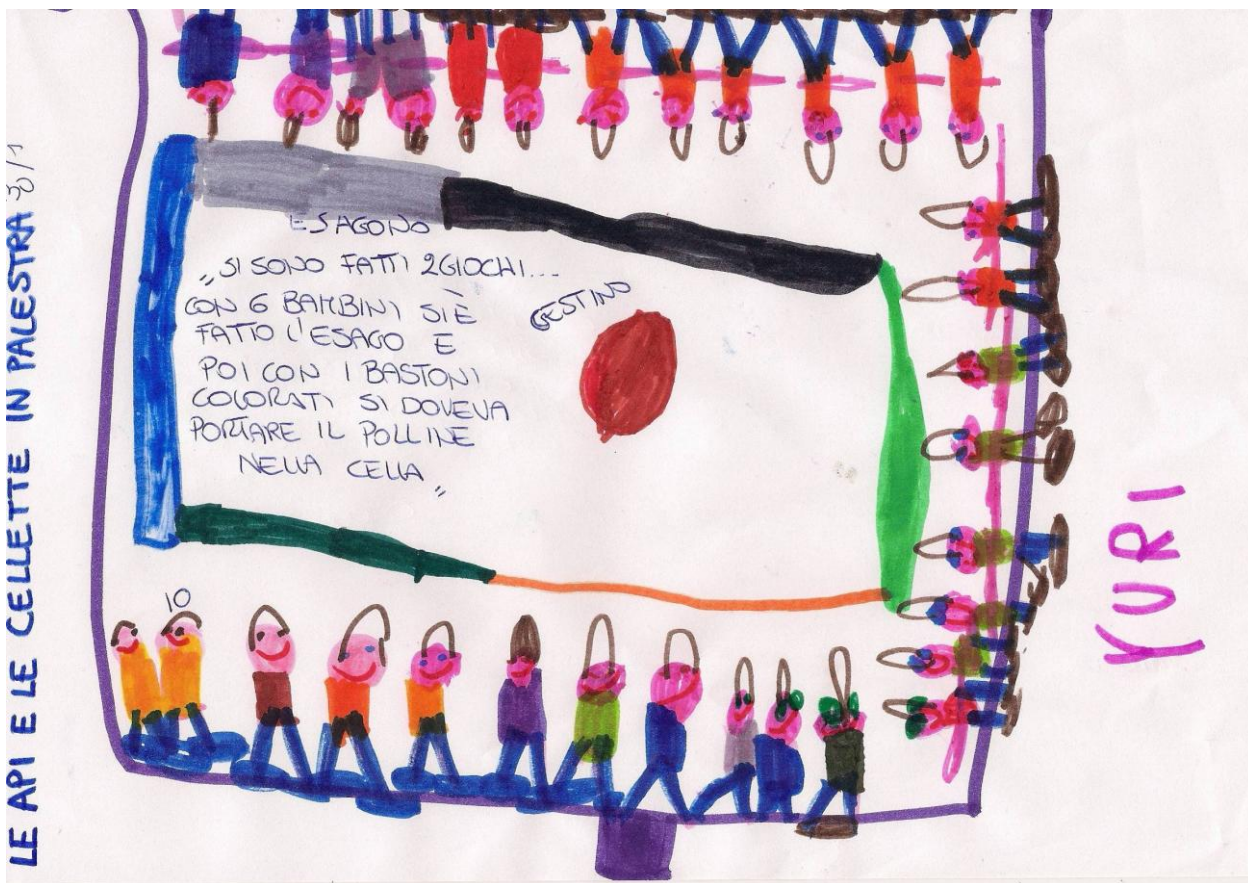 LE API E LE CELLETTE IN PALESTRA 30/1
ESAGONO
"SI SONO FATTI 2 GIOCHI...
CON 6 BAMBINI SI È
FATTO L'ESAGO E
POI CON I BASTONI
COLORATI SI DOVEVA
PORTARE IL POLLINE
NELLA CELLA"
CESTINO
IO
YURI